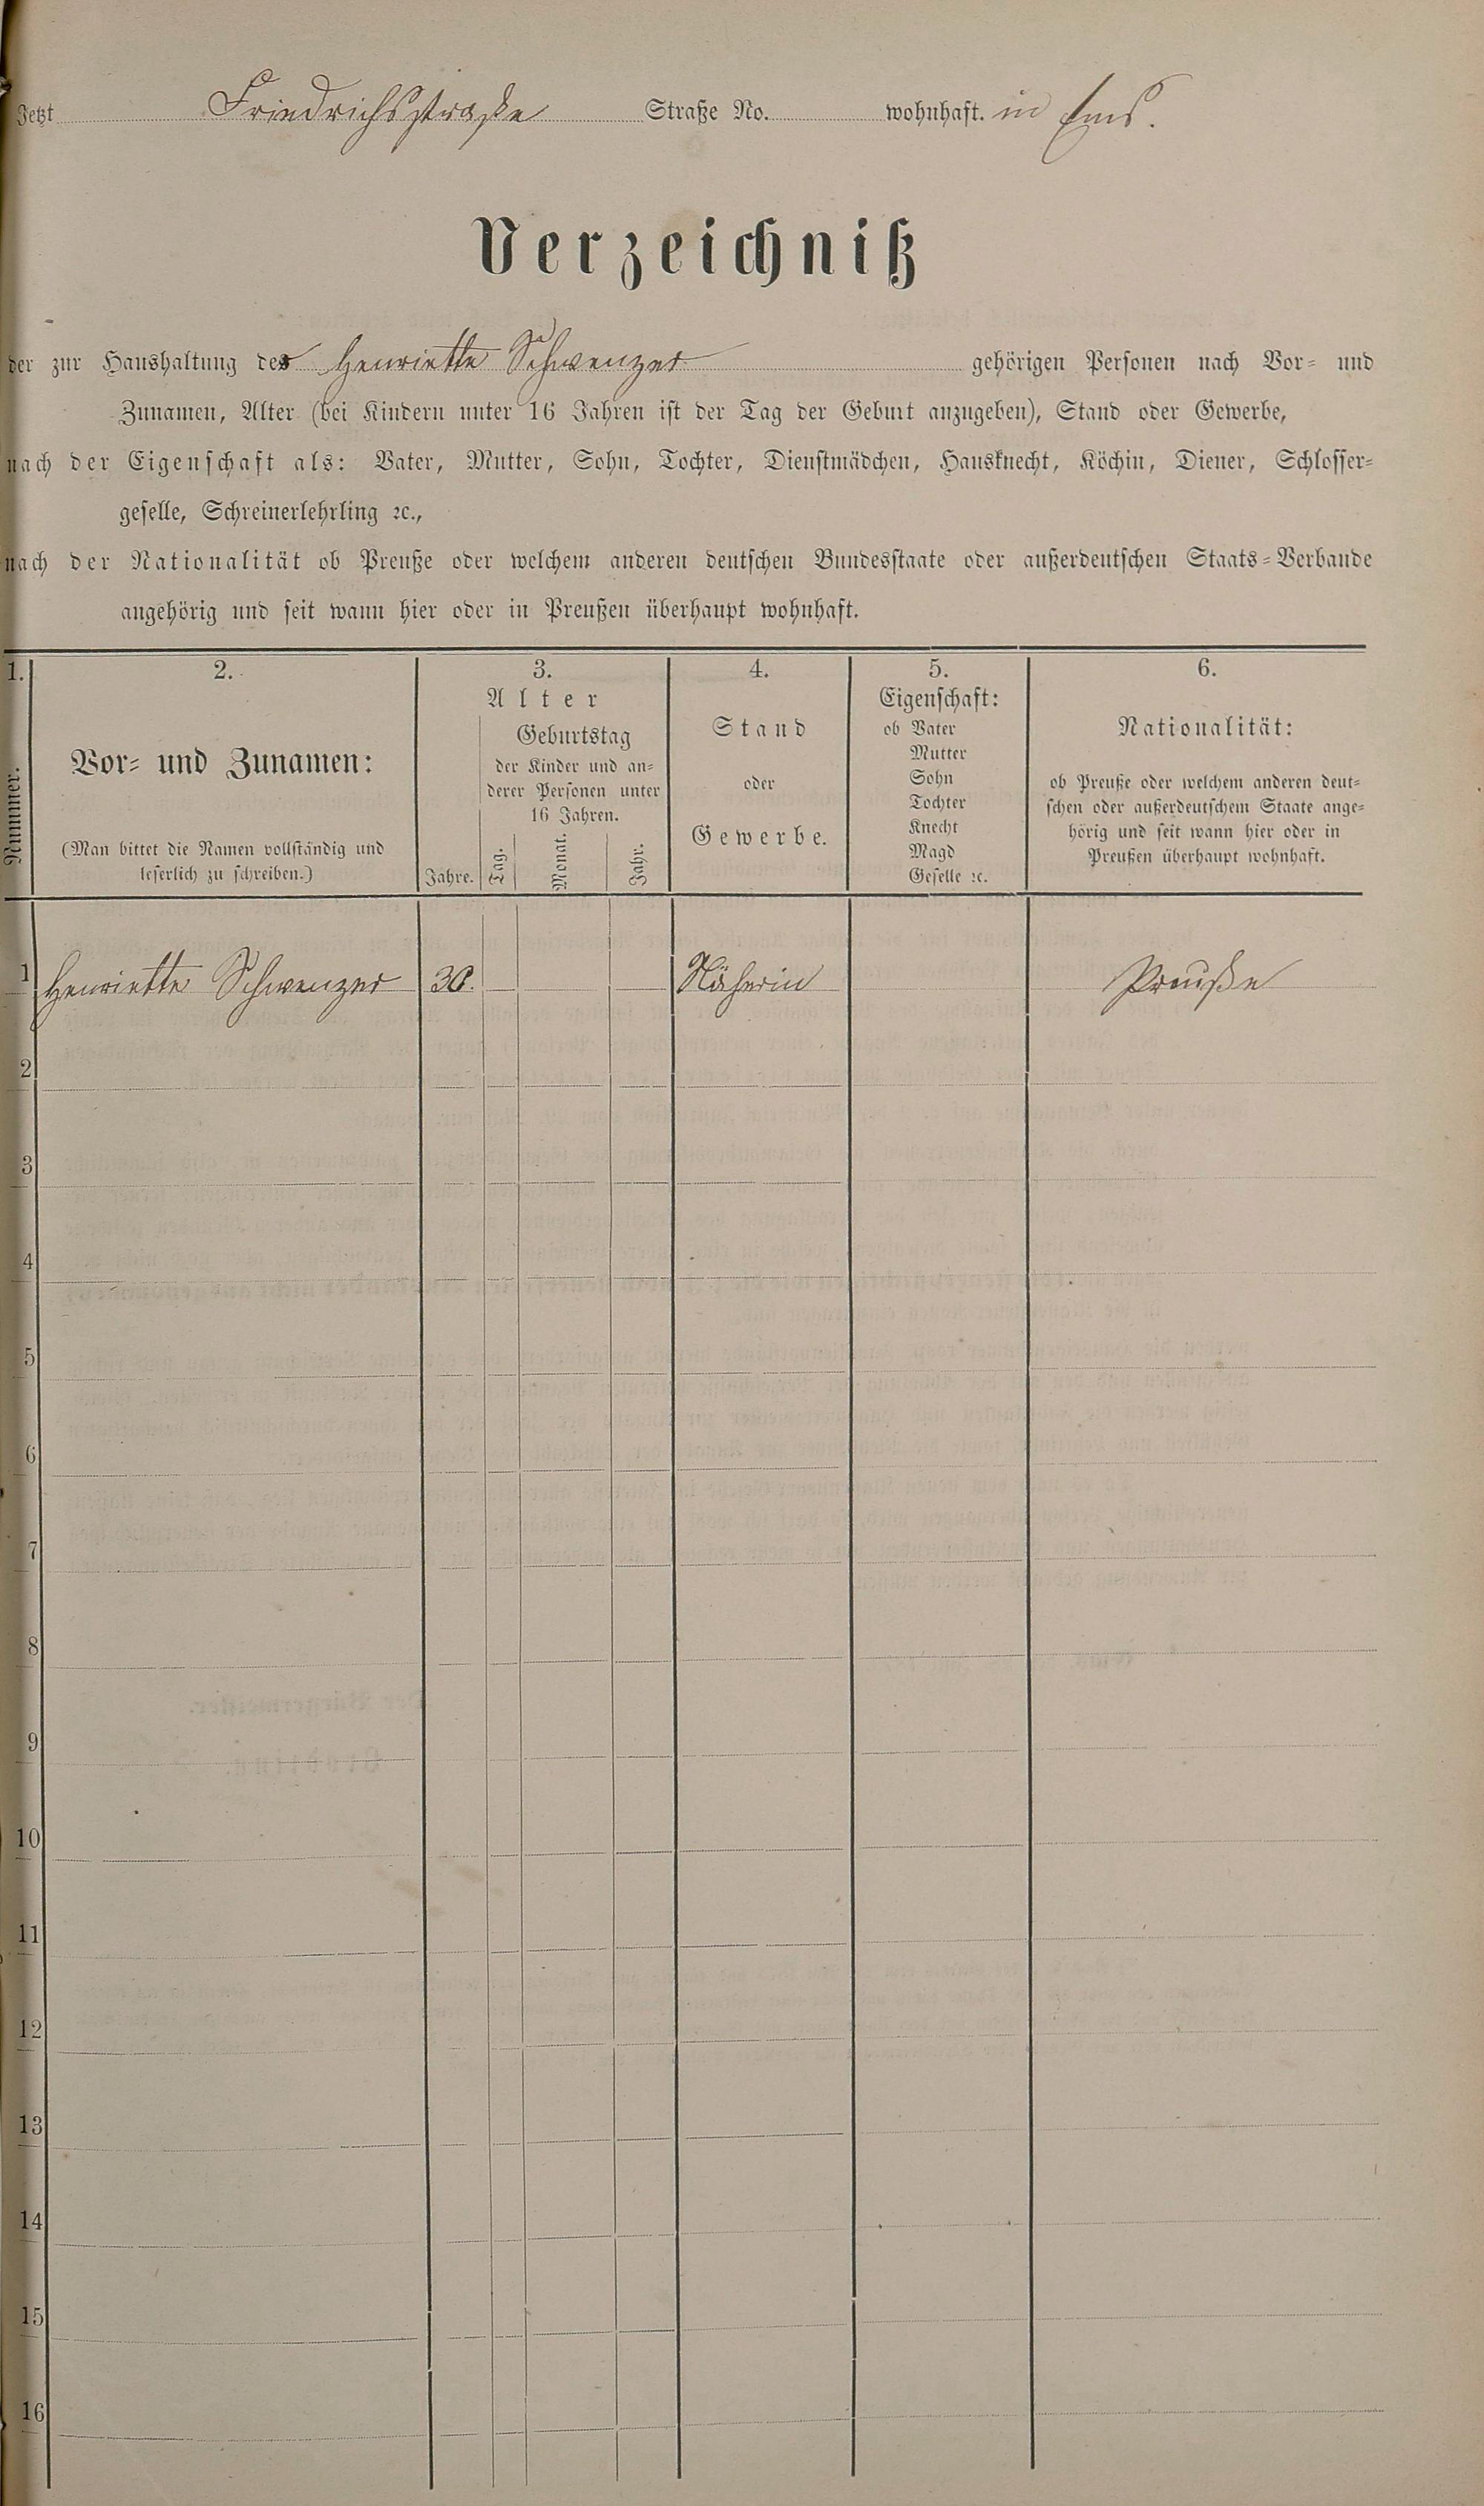 Jetzt Friedrichsstraße Straße No. wohnhaft. in Ems.
Verzeichniß
der zur Haushaltung der Henriette Schwenzer gehörigen Personen nach Vor- und
Zunamen, Alter (bei Kindern unter 16 Jahren ist der Tag der Geburt anzugeben), Stand oder Gewerbe,
nach der Eigenschaft als: Vater, Mutter, Sohn, Tochter, Dienstmädchen, Hausknecht, Köchin, Diener, Schlosser-
geselle, Schreinerlehrling ꝛc.,
nach der Nationalität ob Preuße oder welchem anderen deutschen Bundesstaate oder außerdeutschen Staats-Verbande
angehörig und seit wann hier oder in Preußen überhaupt wohnhaft.
1.
Nummer.
2.
Vor- und Zunamen:
(Man bittet die Namen vollständig und
leserlich zu schreiben.)
3.
Alter
Geburtstag
der Kinder und an-
derer Personen unter
16 Jahren.
Jahre. Tag. Monat. Jahr.
4.
Stand
oder
Gewerbe.
5.
Eigenschaft:
ob Vater
Mutter
Sohn
Tochter
Knecht
Magd
Geselle ꝛc.
6.
Nationalität:
ob Preuße oder welchem anderen deut-
schen oder außerdeutschem Staate ange-
hörig und seit wann hier oder in
Preußen überhaupt wohnhaft.
1 Henriette Schwenzer 30. Näherin Preuße
2
3
4
5
6
7
8
9
10
11
12
13
14
15
16